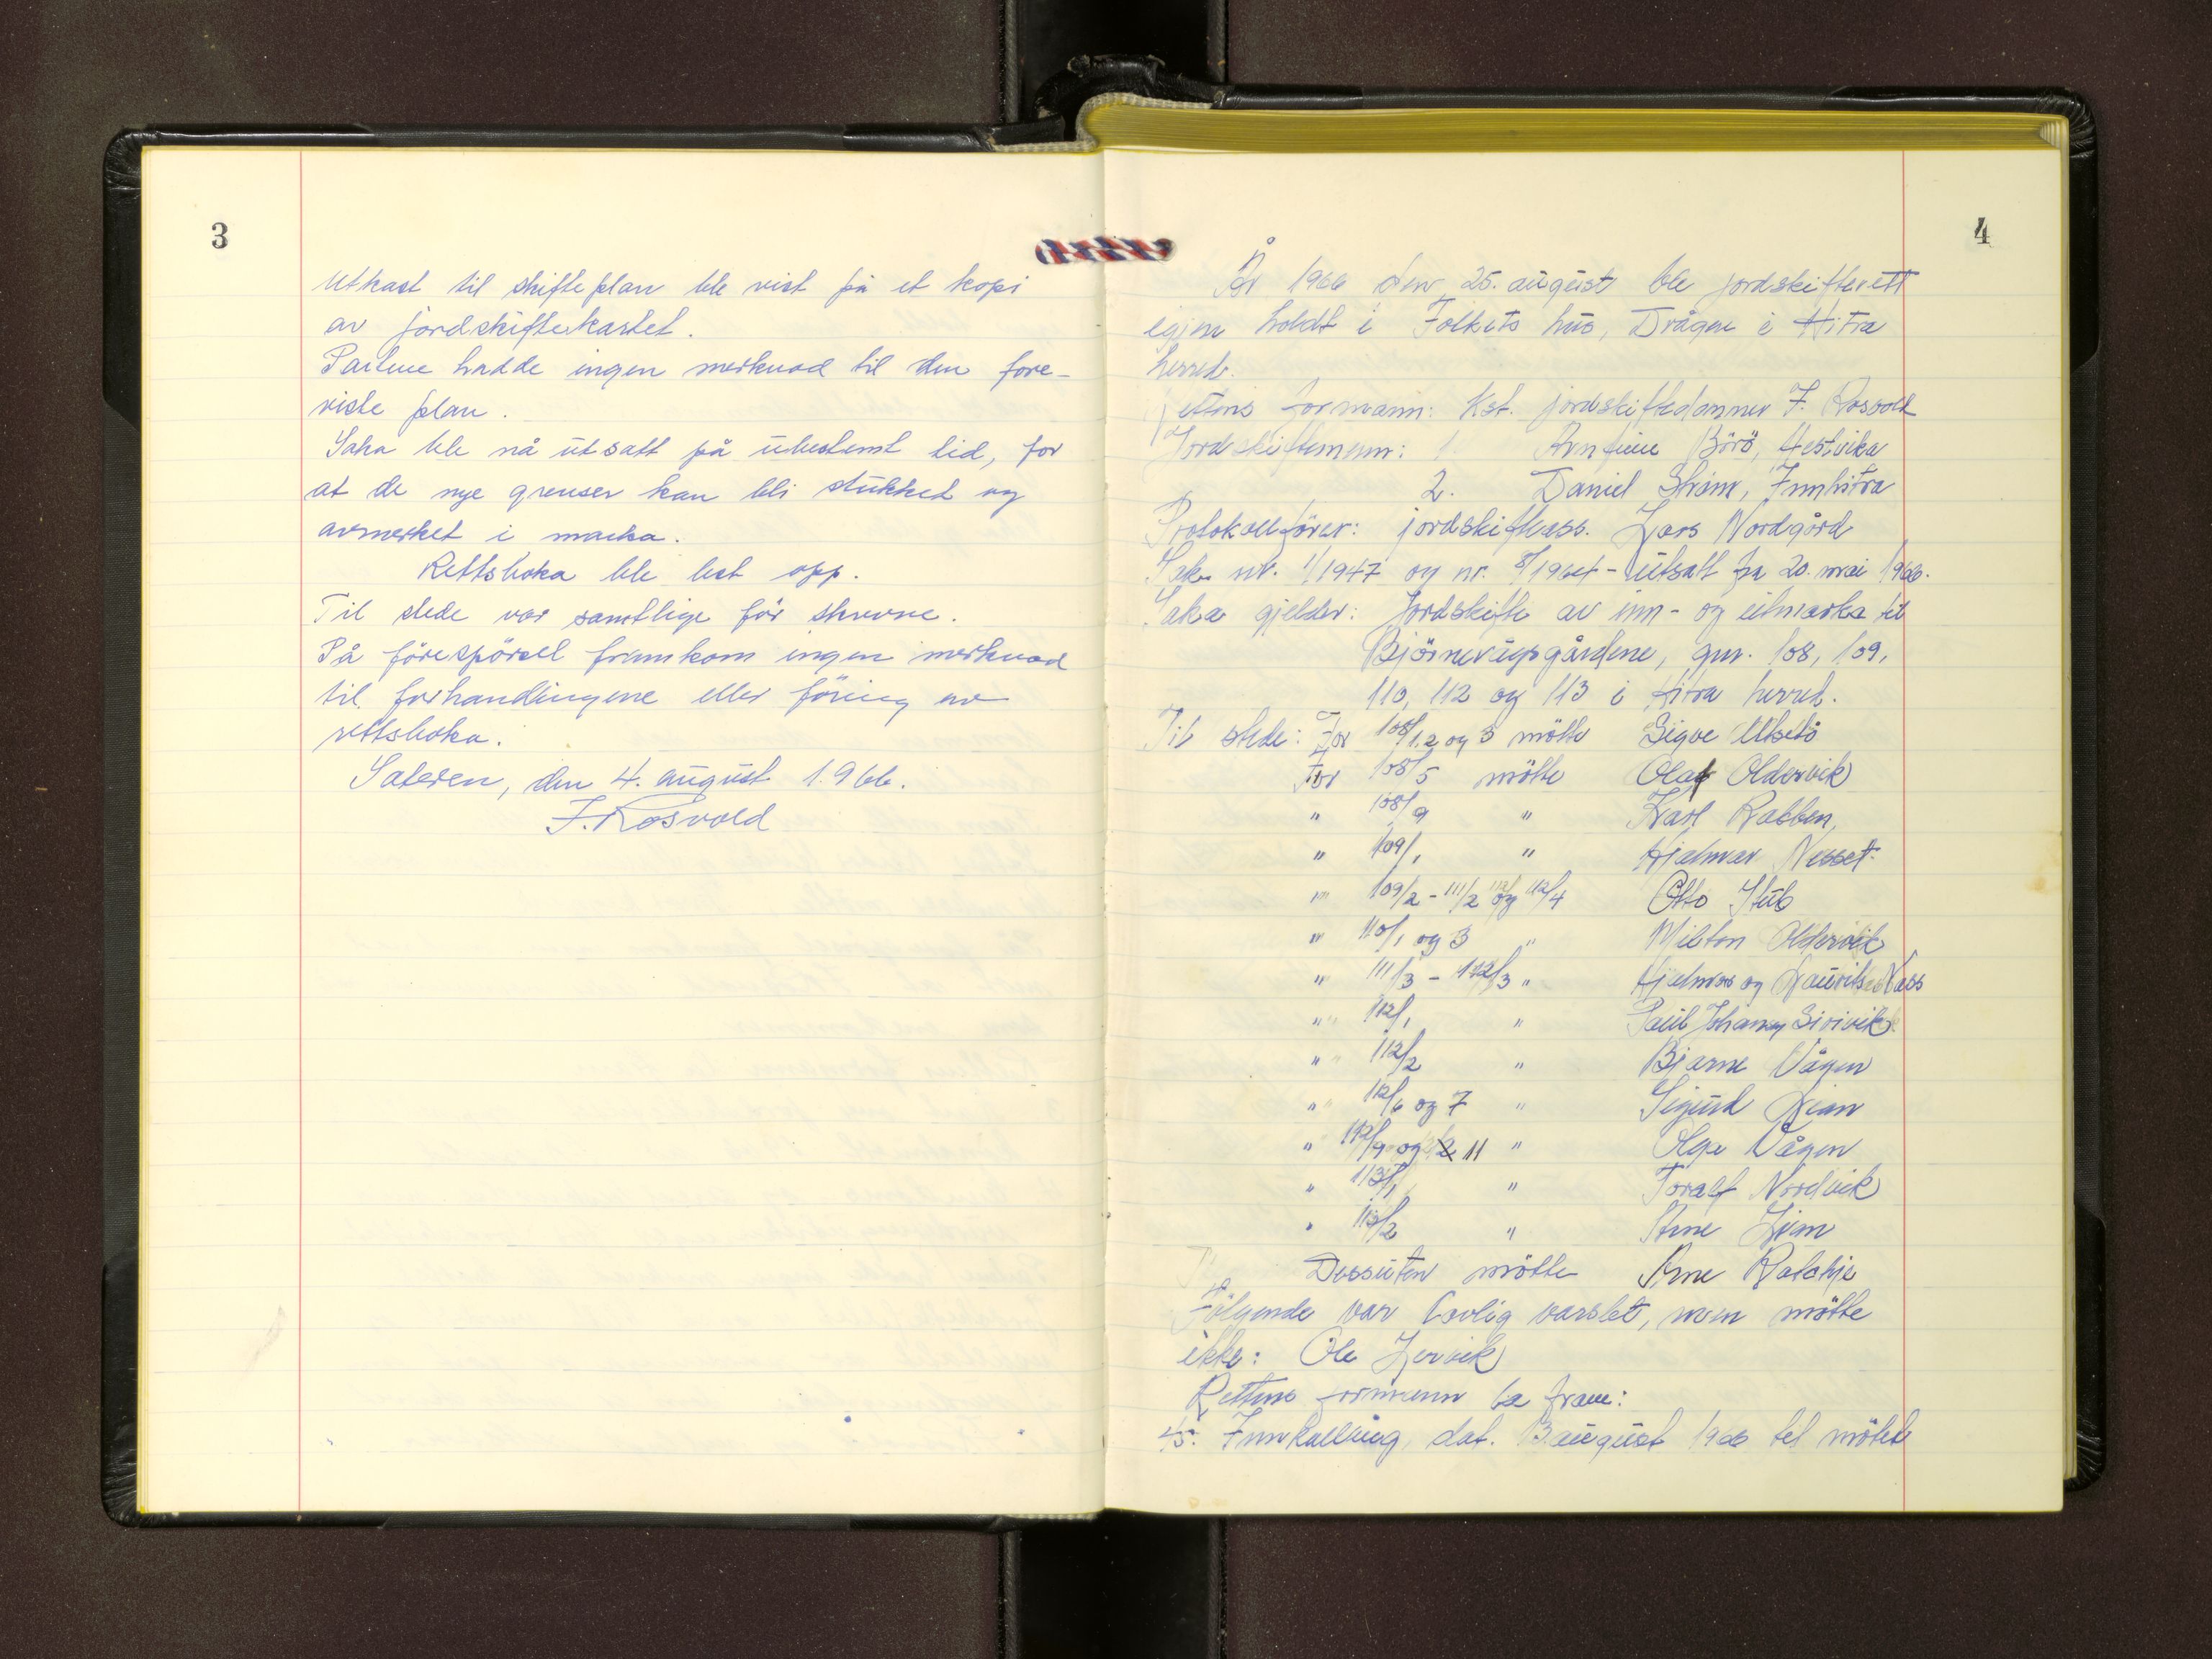 3
Utkast til skifteplan ble vist på et kopi
av jordskiftekartet.
Partene hadde ingen merknad til den fore-
viste plan.
Saka ble nå utsatt på ubestemt tid, for
at de nye grenser kan bli stukket og
avmerket i marka.
Rettsboka ble lest opp.
Til stede var samtlige før skrevne.
På förespörsel framkom ingen merknad
til forhandlingene eller föring av
rettsboka.
Sateren, den 4. august 1966.
F. Rosvold
4
År 1966 den 25. august ble jordskifterett
igjen holdt i Folkets hus, Vågen i Hitra
herred.
Rettens formann: Kst. jordskiftedommer F. Rosvold
Jordskiftemenn: 1 Arnfinn Börö, Hestvika
2. Daniel Strøm, Innhitra
Protokollförer: jordskifteass. Lars Nordgård
Sak nr. 1/1947 og nr. 8/1964 - utsatt fra 20. mai 1966.
Saka gjelder: Jordskifte av inn- og utmarka til
gårdene, gnr. 108, 109,
110, 112 og 113 i Hitra herred.
Til stede: For 108/1,2 og 3 mötte Sigve Utsetö
For 108/5 mötte Olaf Oldervik
" 108/9 " Karl Rabben,
" 109/1 " Hjalmar Nesset.
" 109/2 - 111/2 og 112/4 Otto Stub
" 110/1 og 3 " Milton Oldervik
" 111/3 - 112/3 " Hjalmar og Laurits Næss
" 112/1 " Paul Johansy Sivivik
" 112/2 " Bjarne Vågen
" 112/6 og 7 " Sigurd Lian
" 112/9 og 11 " Olga Vågen
" 113/1 " Toralf Nordvik
" 113/2 " Stine Lian
Dessuten mötte Arne Ratchje
Fölgende var lovlig varslet, men mötte
ikke: Ole Lervik
Rettens formann la fram:
45. Innkalling, dat. 13 august 1966 til mötet